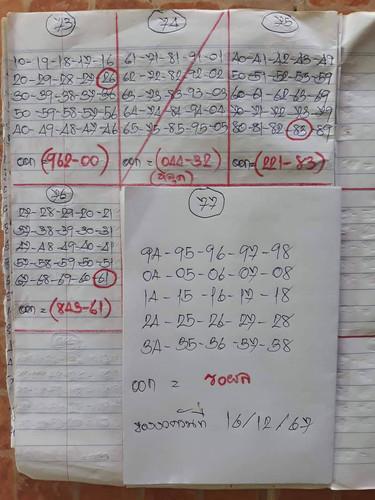 73 74 75
10-19-18-17-16 61-71-81-91-01 40-41-42-43-49
20-29-28-27-26 62-72-82-92-02 50-51-52-53-59
30-39-38-37-36 63-73-83-93-03 60-61-62-63-69
50-59-58-57-56 64-74-84-94-04 70-71-72-73-79
40-49-48-47-46 65-75-85-95-05 80-81-82-83-89
ออก =(962-00) ออก =(044-32) ออก=(221-83)
76
27-28-29-20-21
37-38-39-30-31
47-48-49-40-41
57-58-59-50-51
67-68-69-60-61
ออก =(843-61)
77
94-95-96-97-98
04-05-06-07-08
14-15-16-17-18
24-25-26-27-28
34-35-36-37-38
ออก = รอผล
16/12/67